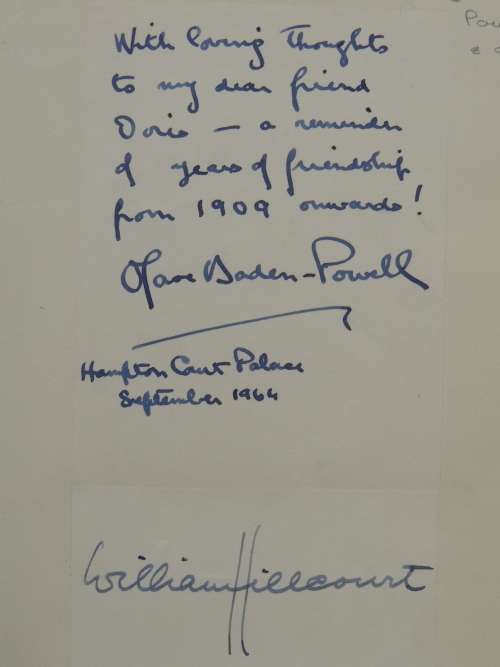 With loving Thoughts
to my dear friend
Doris — a reminder
of years of friendship
from 1909 onwards!
Olave Baden-Powell
Hampton Court Palace
September 1964
William Hillcourt